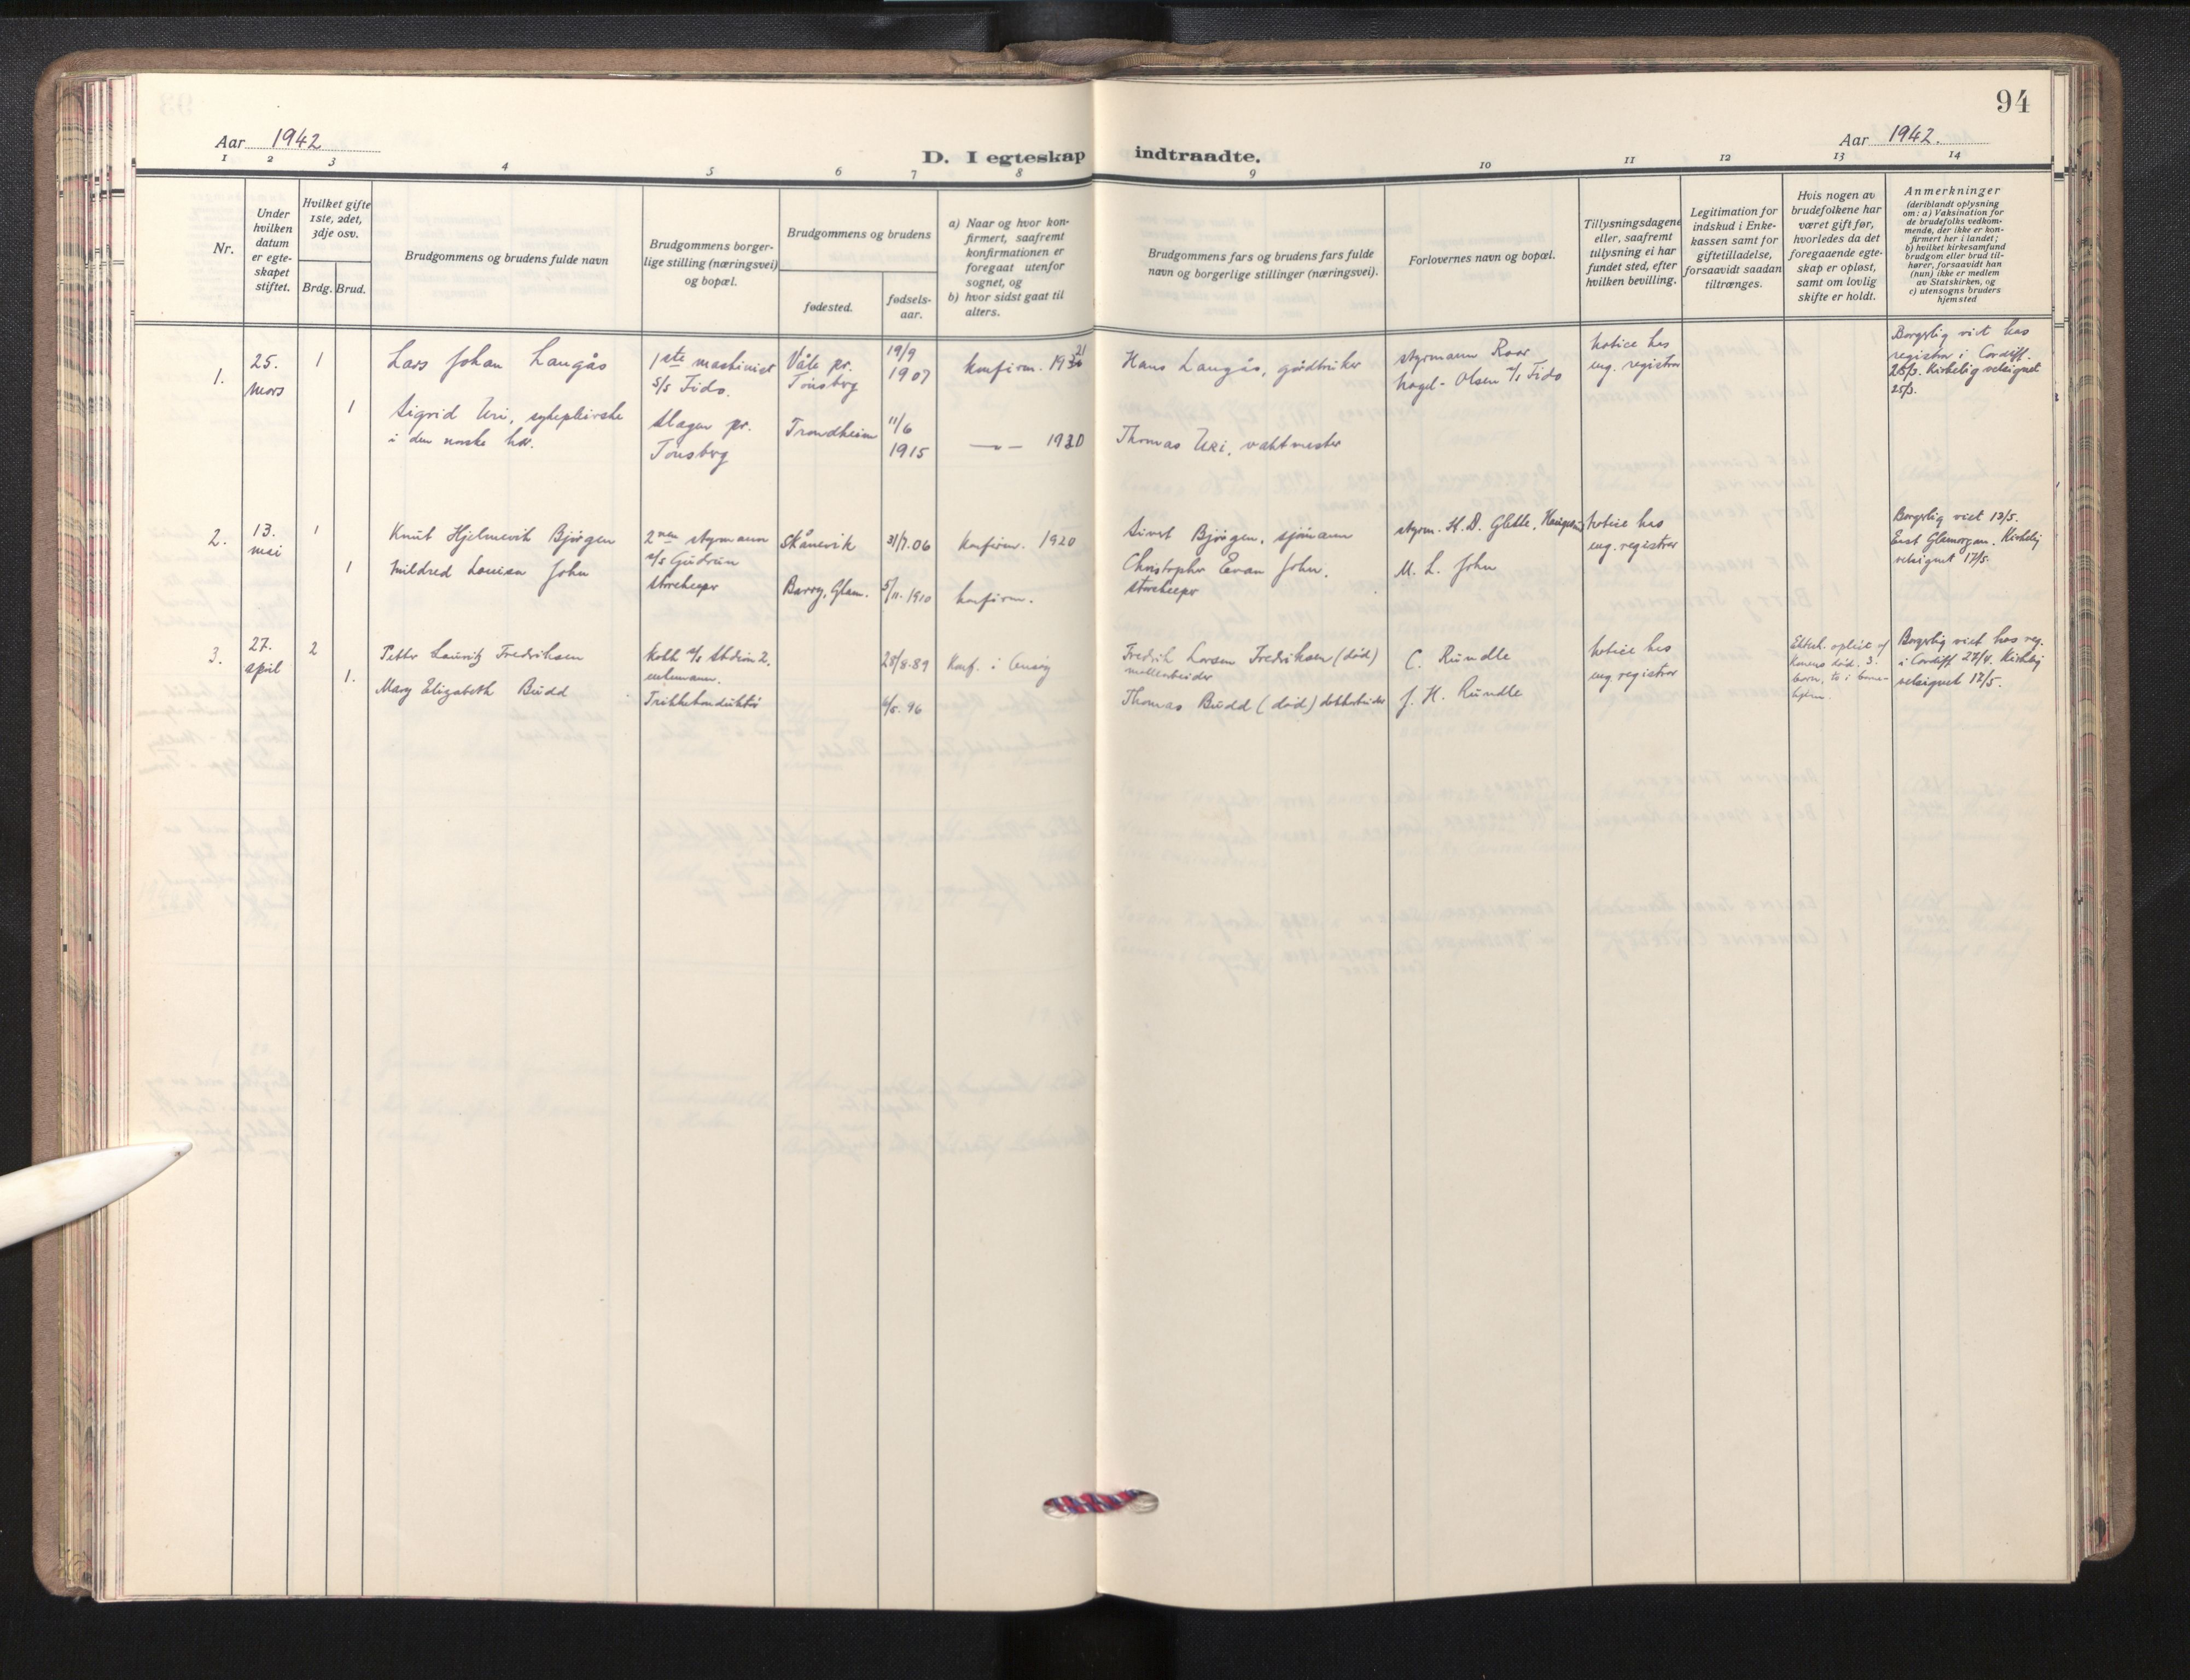 94
Aar 1942
Aar 1942.
D. I egteskap indtraadte.
1 2 3 4 5 6 7 8 9 10 11 12 13 14
Nr.
Under
hvilken
datum
er egte-
skapet
stiftet.
Hvilket gifte
1ste, 2det,
3dje osv.
Brdg. Brud.
Brudgommens og brudens fulde navn
Brudgommens borger-
lige stilling (næringsvei)
og bopæl.
Brudgommens og brudens
fødested.
fødsels-
aar.
a) Naar og hvor kon-
firmert, saafremt
konfirmationen er
foregaat utenfor
sognet, og
b) hvor sidst gaat til
alters.
Brudgommens fars og brudens fars fulde
navn og borgerlige stillinger (næringsvei).
Forlovernes navn og bopæl.
Tillysningsdagene
eller, saafremt
tillysning ei har
fundet sted, efter
hvilken bevilling.
Legitimation for
indskud i Enke-
kassen samt for
giftetilladelse,
forsaavidt saadan
tiltrænges.
Hvis nogen av
brudefolkene har
været gift før,
hvorledes da det
foregaaende egte-
skap er opløst,
samt om lovlig
skifte er holdt.
Anmerkninger
(deriblandt oplysning
om: a) Vaksination for
de brudefolks vedkom-
mende, der ikke er kon-
firmert her i landet;
b) hvilket kirkesamfund
brudgom eller brud til-
hører, forsaavidt han
(hun) ikke er medlem
av Statskirken, og
c) utensogns bruders
hjemsted
1.
25.
mars
1
Lars Johan Langås
1ste maskinist
s/s Fido.
Våle pr.
Tønsberg
19/9
1907
konfirm. 1921
Hans Langås, gårdbruker
styrmann Roar
Nagel-Olsen s/s Fido
Notice hos
eng. registrar
Borgerlig viet hos
registrar i Cardiff.
25/3. Kirkelig velsignet
25/3.
1
Sigrid Uri, sykepleierske
i den norske hær.
Slagen pr.
Tønsberg
Trondheim
11/6
1915
—„— 1930
Thomas Uri, vaktmester
2.
13.
mai
1
Knut Hjelmevik Bjørgen
2nen styrmann
s/s Gudrun
Skånevik
31/7.06
Konfirm. 1920
Sivert Bjørgen, sjømann
styrm. H. D. Glette,
Notice hos
eng. registrar
Borgerlig viet 13/5.
East Glamorgan. Kirkelig
velsignet 17/5.
1
Mildred Louisa John
Storekeeper
Barry, Glam.
5/11.1910
konfirm.
Christopher Evan John,
storekeeper
M. L. John
3.
27.
april
2
Petter Lauritz Fredriksen
Kokk
enkemann.
28/8.89
Konf. i
Fredrik Larsen Fredriksen (død)
møllearbeider
C. Rundle
Notice hos
eng. registrar
Ektesk. opløst v/
konens død. 3
barn, to i
Borgerlig viet hos reg.
i Cardiff 27/4. Kirkelig
velsignet 17/5.
1.
Mary Elizabeth Budd
Trikkekonduktør
4/5. 96
Thomas Budd (død) dokkarbeider
J. H. Rundle